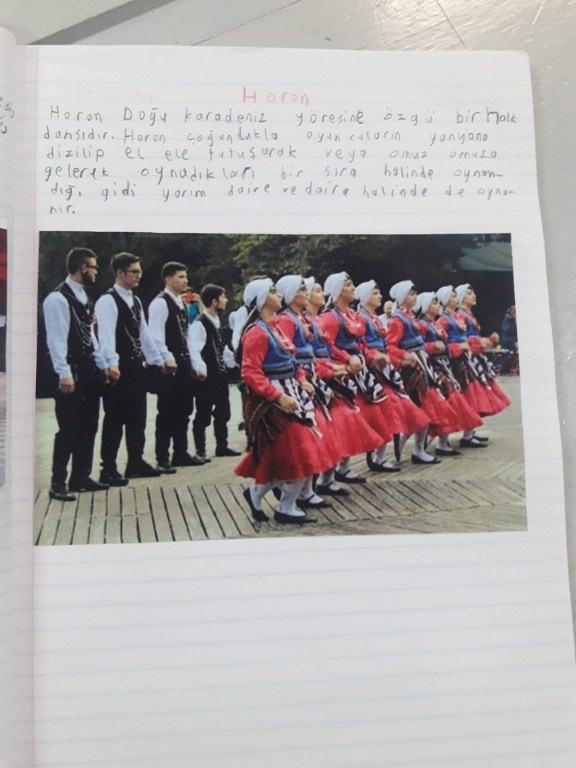 Horon
Horon Doğu karadeniz yöresine özgü bir Halk
dansıdır. Horon çoğunlukla oyuncuların yanyana
dizilip el ele tutuşarak veya omuz omuza
gelerek oynadıkları bir sıra halinde oynan-
dığı gidi yarım daire ve daire halinde de oyna-
nır.